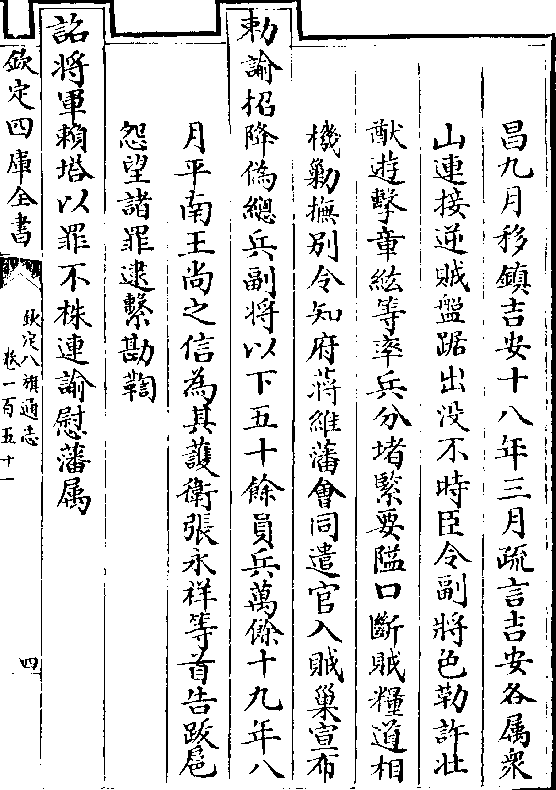 昌九月移鎮吉安十八年三月疏言吉安各属衆
山連接逆賊盤踞出没不時臣令副將色勒許壯
猷遊擊章紘等率兵分堵緊要隘口斷賊糧道相
機勦撫別令知府蔣維藩會同遣官入賊巢宣布
勅諭招降僞總兵副將以下五十餘員兵萬餘十九年八
月平南王尚之信為其護衛張永祥等首告跋扈
怨望諸罪逮繫勘鞫
詔將軍頼塔以罪不株連諭慰藩属
欽定四庫全書
欽定八旗通志
卷一百五十一
四